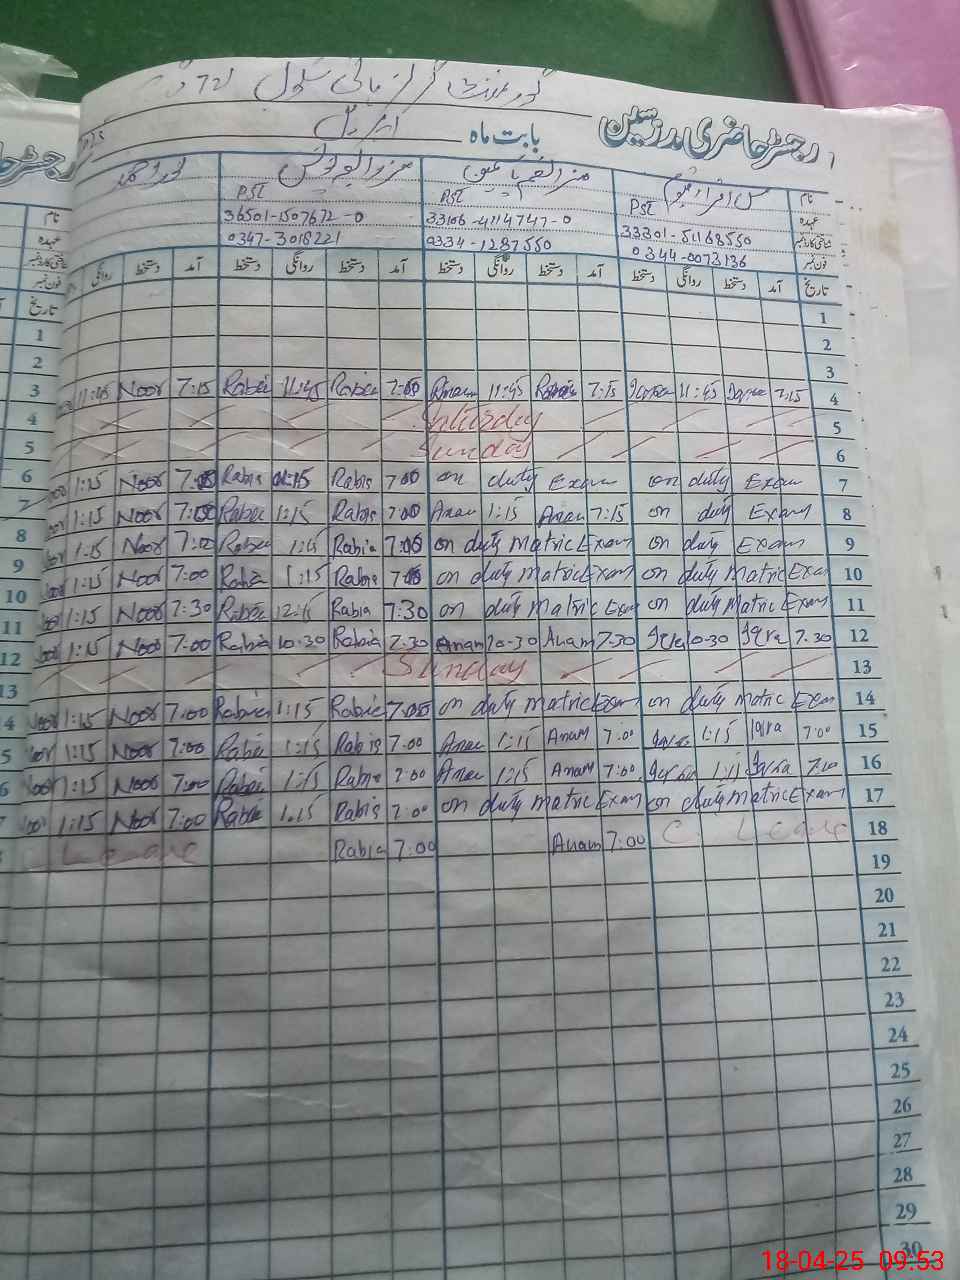 گورنمنٹ گرلز ہائی سکول
رجسٹر حاضری مدرسین بابت ماہ اپریل
نام
عہدہ PST PST PST
شناختی کارڈ نمبر 33301-51168550 33106-4114747-0 36501-1507672-0
فون نمبر 0344-0073136 0334-1287550 0347-3018221
تاریخ آمد دستخط روانگی دستخط آمد دستخط روانگی دستخط آمد دستخط روانگی دستخط آمد دستخط روانگی
1
2
3
11:45 Noor 7:15 Rabia 11:45 Rabia 7:00 Anam 11:45 7:15 11:45 7:15 4
Saturday 5
Sunday 6
1:15 Noor 7:00 Rabia 01:15 Rabia 7:00 on duty Exam on duty Exam 7
1:15 Noor 7:00 Rabia 1:15 Rabia 7:00 Anam 1:15 Anam 7:15 on duty Exam 8
1:15 Noor 7:00 Rabia 1:15 Rabia 7:05 on duty Matric Exam on duty Exam 9
1:15 Noor 7:00 Rabia 1:15 Rabia on duty Matric Exam on duty Matric Exam 10
1:15 Noor 7:30 Rabia 12:15 Rabia 7:30 on duty Matric Exam on duty Matric Exam 11
1:15 Noor 7:00 Rabia 10:30 Rabia 7:30 Anam 10-30 Anam 7:30 Iqra 10-30 Iqra 7:30 12
Sunday 13
Noor 1:15 Noor 7:00 Rabia 1:15 Rabia 7:00 on duty Matric Exam on duty Matric Exam 14
Noor 1:15 Noor 7:00 Rabia 1:15 Rabia 7:00 Anam 1:15 Anam 7:00 Iqra 1:15 Iqra 7:00 15
Noor 1:15 Noor 7:00 Rabia 1:15 Rabia 7:00 Anam 1:15 Anam 7:00 Iqra 1:15 Iqra 7:00 16
Noor 1:15 Noor 7:00 Rabia 1:15 Rabia 7:00 on duty Matric Exam on duty Matric Exam 17
Leave Rabia 7:00 Anam 7:00 C. Leave 18
19
20
21
22
23
24
25
26
27
28
29
30
18-04-25 09:53